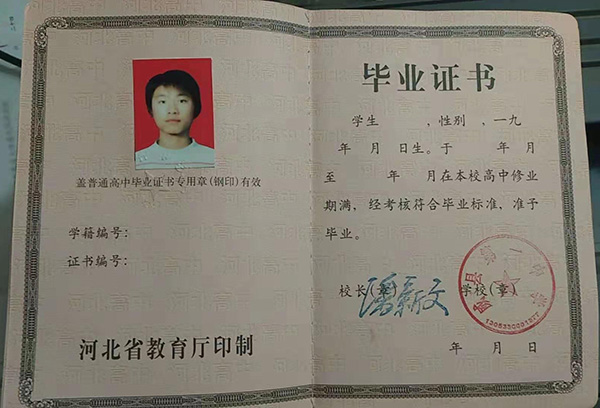 盖普通高中毕业证书专用章(钢印)有效
学籍编号:
证书编号:
河北省教育厅印制
毕业证书
学生 ,性别 ,一九
年 月 日生。于 年 月
至 年 月在本校高中修业
期满,经考核符合毕业标准,准予
毕业。
校长(章) 学校(章)
潘新文
年 月 日